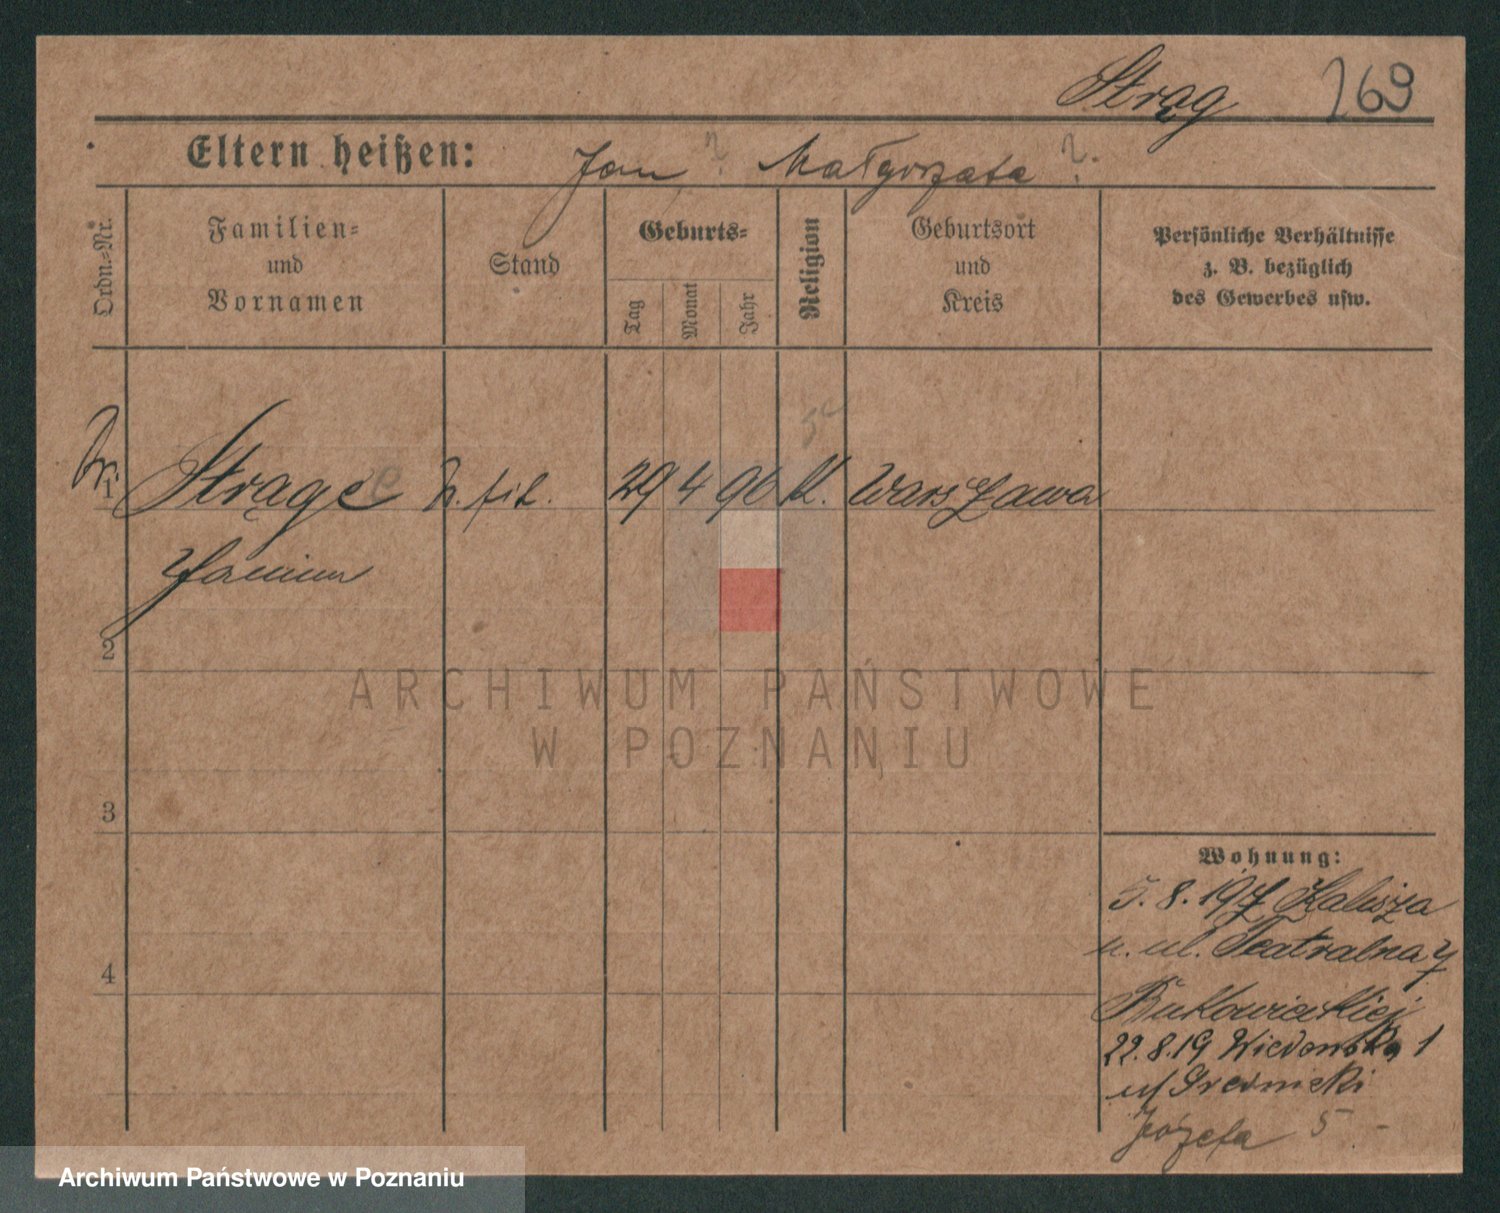 Strąg 269
Eltern heißen: Jan ? Małgorzata ?
Ordn.-Nr.
Familien-
und
Vornamen
Stand
Geburts-
Tag
Monat
Jahr
Religion
Geburtsort
und
Kreis
Persönliche Verhältnisse
z. B. bezüglich
des Gewerbes usw.
1 Strąge 29 4 96 K. Warszawa
2
3
4
Wohnung:
5.8.19 z Kalisza
u. ul. Teatralna 7
22.8.19 1
Józefa 5
ARCHIWUM PAŃSTWOWE
W POZNANIU
Archiwum Państwowe w Poznaniu